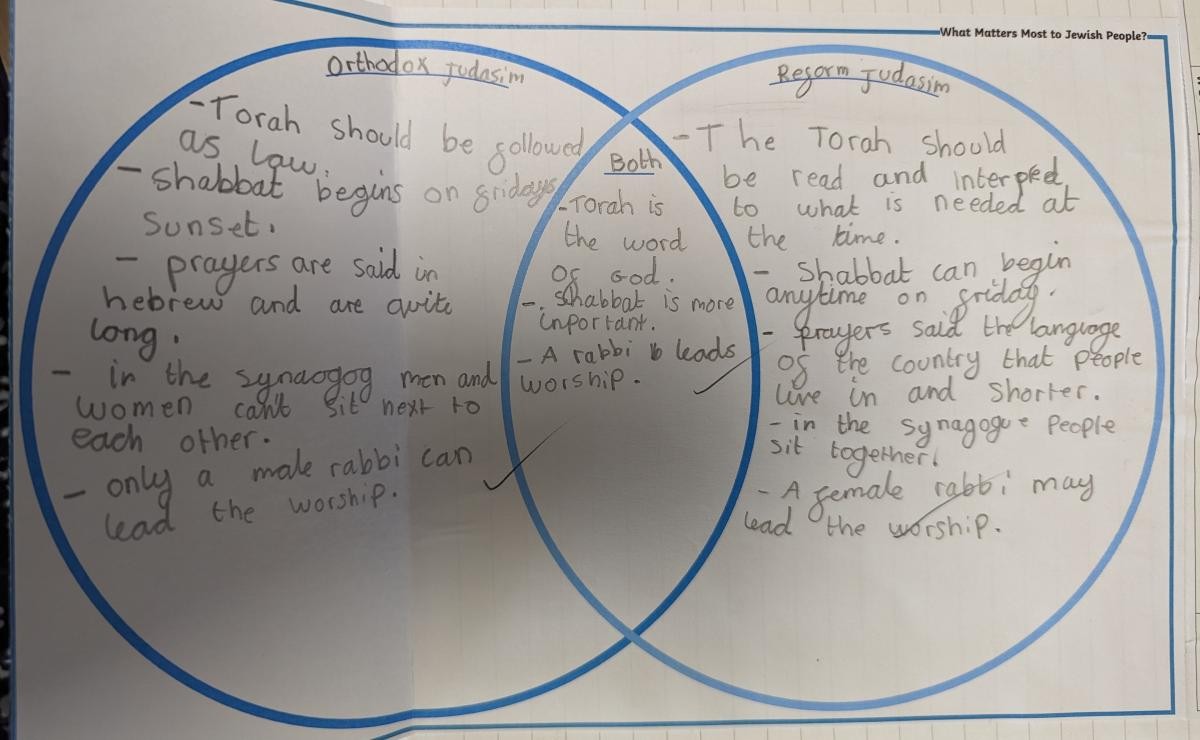 What Matters Most to Jewish People?
Orthodox Judasim
- Torah should be gollowed
as law.
- Shabbat begins on gridays
sunset.
- prayers are said in
hebrew and are quite
long.
- in the synaogog men and
women can't sit next to
each other.
- only a male rabbi can
lead the worship.
Both
- Torah is
the word
of God.
- Shabbat is more
inportant.
- A rabbi leads
worship.
Regorm Judasim
- The Torah should
be read and interpred
to what is needed at
the time.
- Shabbat can begin
anytime on griday.
- prayers said the language
of the country that people
live in and shorter.
- in the synagogue People
sit together.
- A gemale rabbi may
lead the worship.